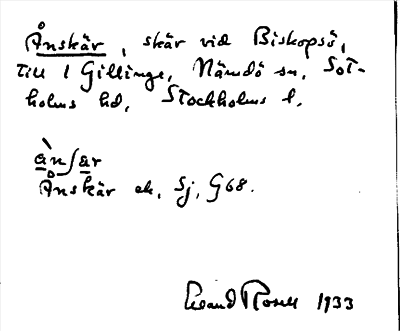 Ånskär, skär vid Biskopsö,
till 1 Gillinge, Nämdö sn, Sot-
holms hd, Stockholms l.
ànʃär
Ånskär ek. Sj. G68.
1933